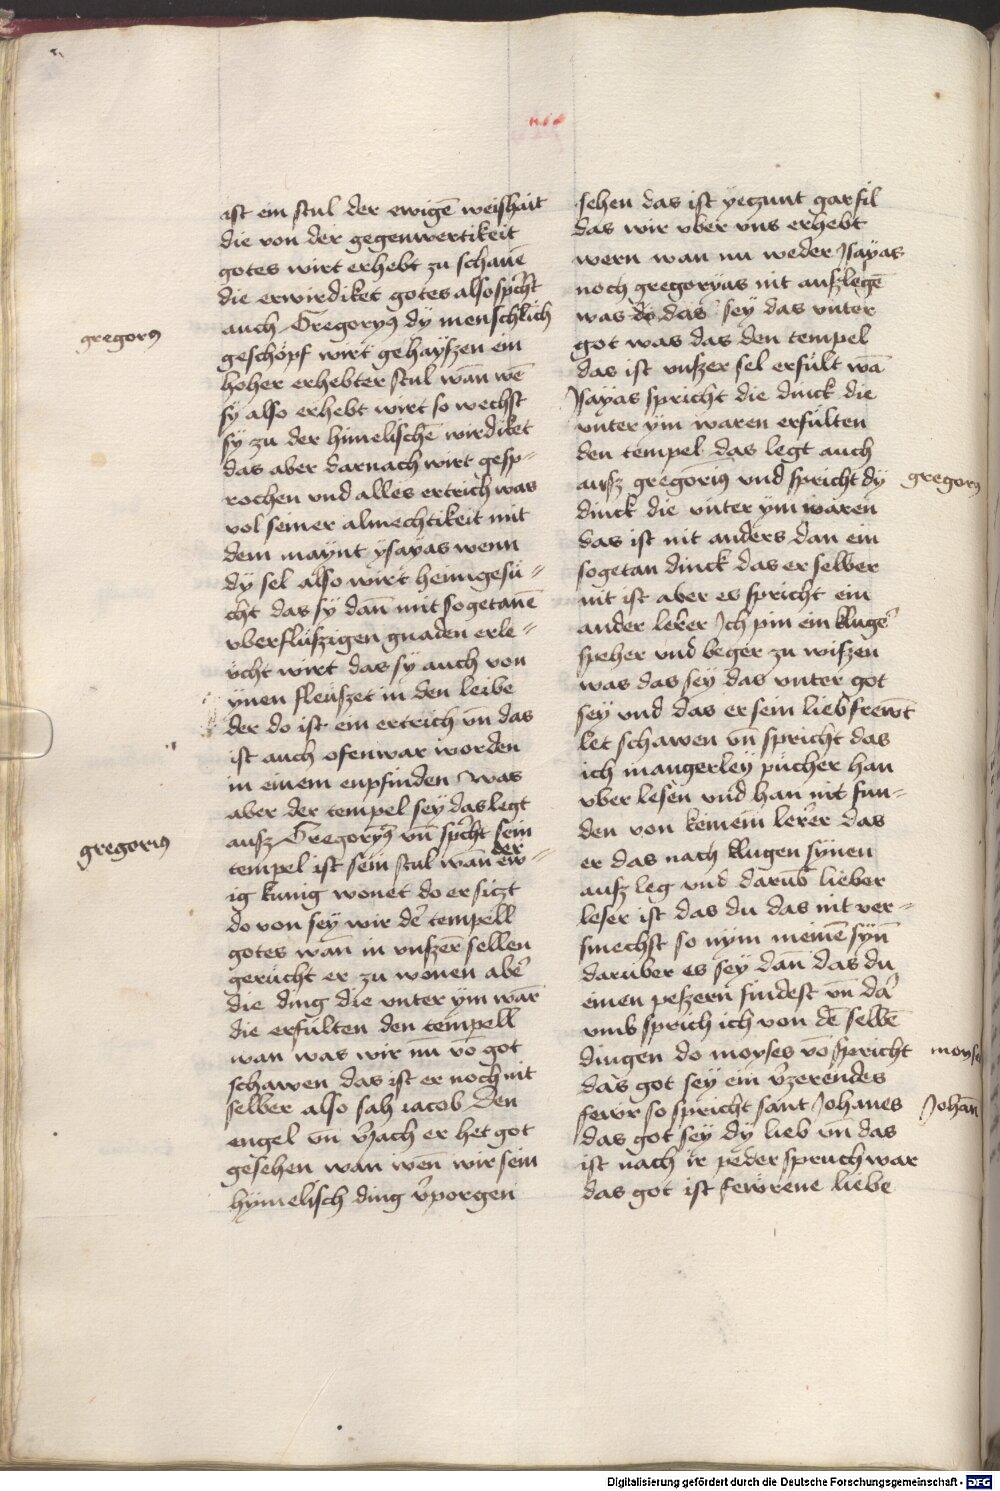 ist ein stul der ewigē weishait
die von der gegenwertikeit
gotes wirt erhebt zu schauē
die erwirdiket gotes also spcht
auch Gregoryꝰ dy menschlich
geschöpf wirt gehayszen ein
hoher erhebter stul wan wē
sy also erhebt wirt so wechst
sy zu der himelischē wirdiket
das aber darnach wirt gesp⸗
rochen vnd alles ertrich was
vol seiner almechtikeit mit
dem maynt ysayas wenn
dy sel also wirt heimgesu⸗
cht das sy dan̄ mit sogetanē
vberflüszigen gnaden erle⸗
ücht wirt das sy auch von
ynen fleuszet in den leibe
der do ist ein ertrich vn̄ das
ist auch ofenwar worden
in einem enpfinden was
aber der tempel sey das legt
ausz Gregoryꝰ vn̄ spcht sein
tempel ist sein stul wan der ew⸗
ig kunig wonet do er siczt
do von sey wir dē tempell
gotes wan̄ in vnszer sellen
gerücht er zu wonen abē
die ding die vnter ym war̄
die erfulten den tempell
wan was wir nu vō got
schawen das ist er noch nit
selber also sah iacob den
engel vn̄ v̄jach er het got
gesehen wan wen̄ wir sein
hymelisch ding v̄porgen
sehen das ist yeczunt gar fil
das wir vber vns erhebt
wern wan nu weder Jsayas
noch gregoryas nit auszlegē
was do das sey das vnter
got was das den tempel
das ist vnszer sel erfult wā
Jsayas spricht die dinck die
vnter ym waren erfulten
den tempel das legt auch
ausz gregoriꝰ vnd spricht dy
dinck die vnter ym waren
das ist nit anders dan ein
sogetan dinck das er selber
nit ist aber es spricht ein
ander lerer Jch pin ein klugē
speher vnd beger zu wiszen
was das sey das vnter got
sey vnd das er sein lieb frewt
let schawen vn̄ spricht das
ich mangerley pucher han
vber lesen vnd han nit fun⸗
den von keinem lerer das
er das nach klugen synen
ausz leg vnd darūb lieber
leser ist das du das nit ver⸗
smechst so nym meinē syn̄
darüber es sey dan̄ das du
einen peszern findest vn̄ dar̄
vmb sprich ich von dē selbē
dingen do moyses vō spricht
das got sey ein v̄zerendes
fewr so spricht sant Johanes
das got sey dy lieb vn̄ das
ist nach ir peder spruch war
das got ist fewrene liebe
gregoriꝰ
gregorius
gregoriꝰ
moyse
Johan̄
Digitalisierung gefördert durch die Deutsche Forschungsgemeinschaft - DFG